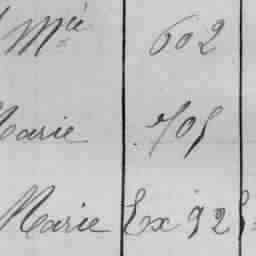 Mie 602
Marie 705
Marie Ex 92